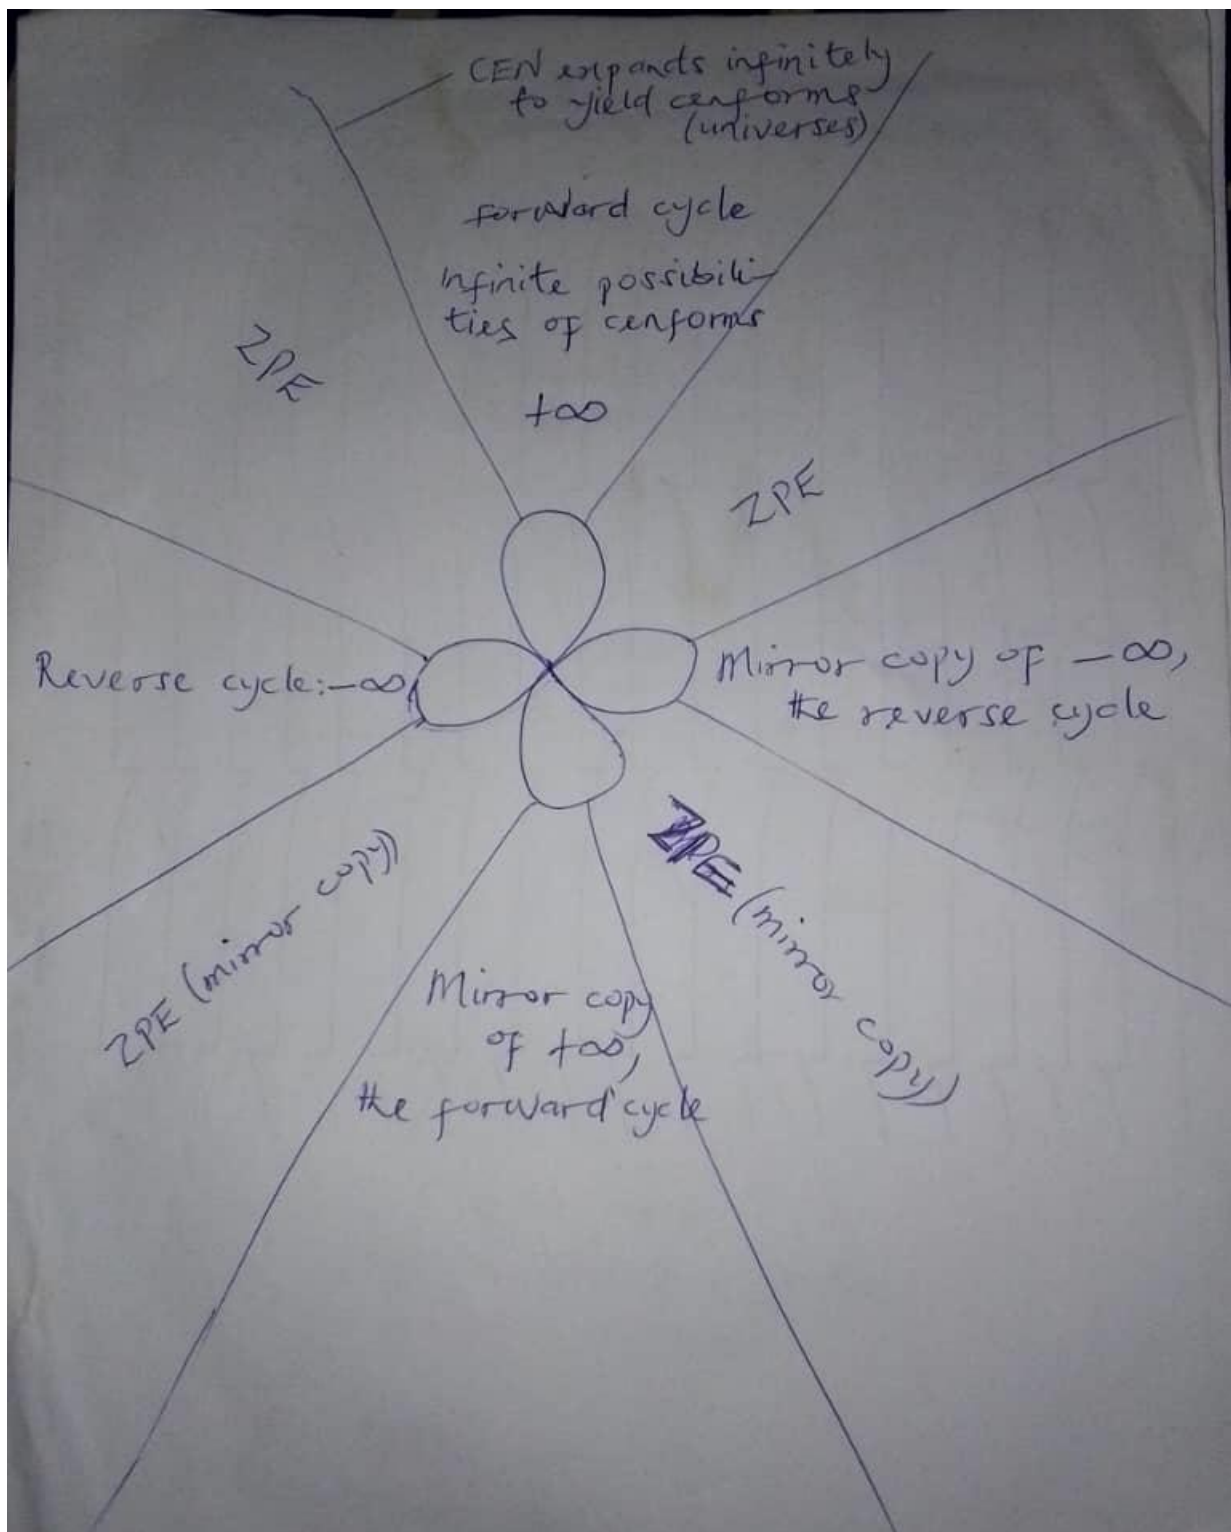 CEN expands infinitely
to yield cenforms
(universes)
forward cycle
Infinite possibili-
ties of cenforms
+∞
ZPE
ZPE
Reverse cycle:-∞
Mirror copy of -∞,
the reverse cycle
ZPE (mirror copy)
ZPE (mirror copy)
Mirror copy
of +∞,
the forward cycle